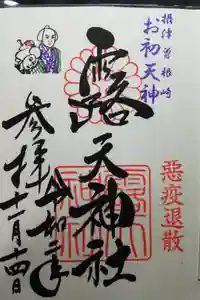 摂津曽根崎
お初天神
露天神社
悪疫退散
参拝
令和二年
十一月十四日